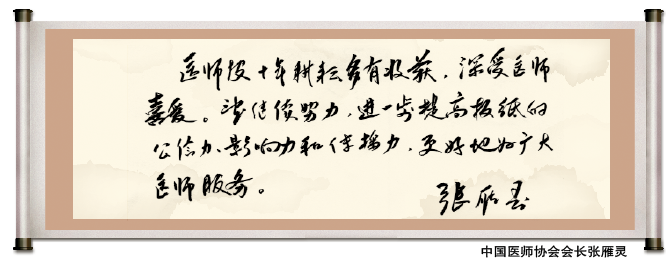 医师报十年耕耘多有收获，深受医师
喜爱。望继续努力，进一步提高报纸的
公信力、影响力和传播力，更好地为广大
医师服务。
张雁灵
中国医师协会会长张雁灵